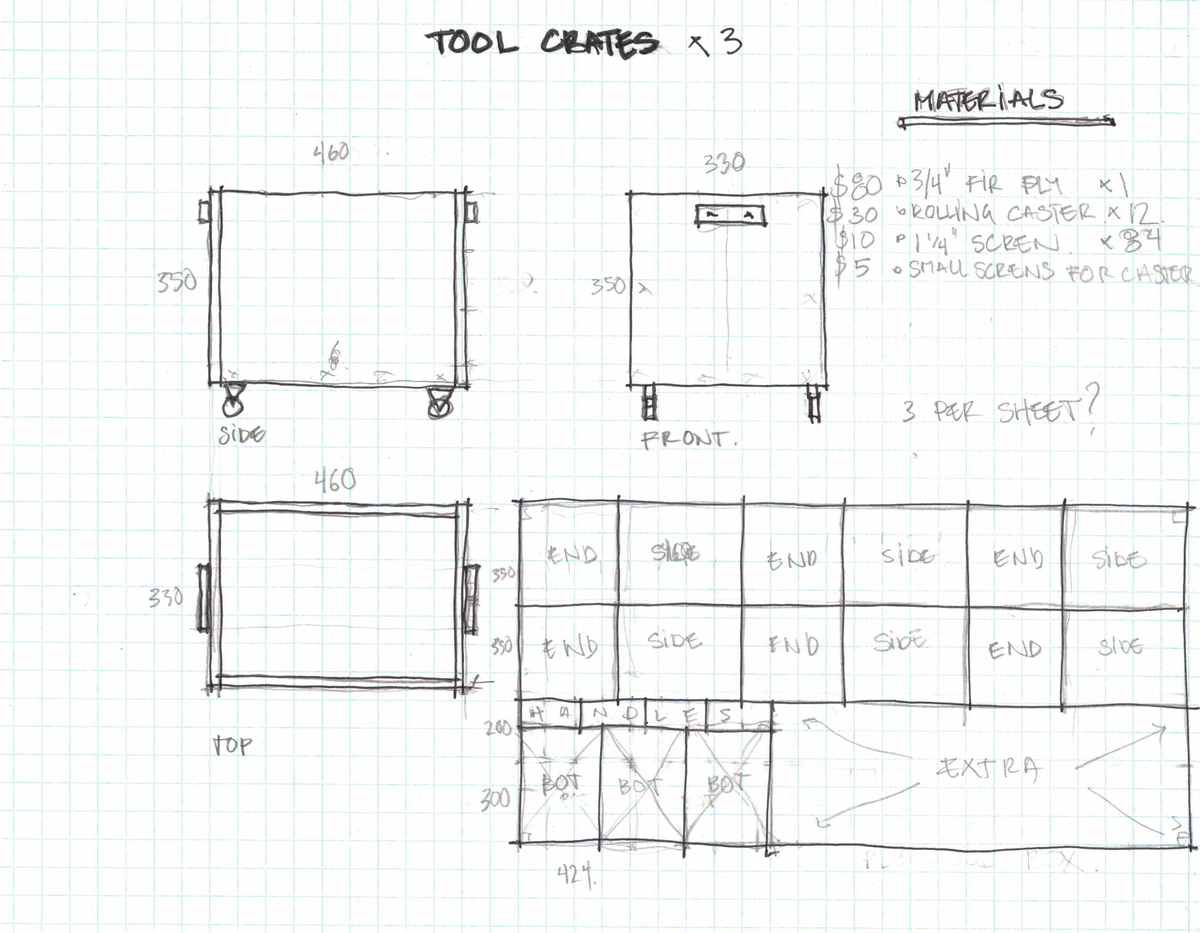 TOOL CRATES x 3
MATERIALS
$80 3/4" FIR PLY x 1
$30 ROLLING CASTER x 12
$10 1 1/4" SCREN x 84
$5 SMALL SCRENS FOR CASTER
460
350
6
SIDE
330
350
FRONT.
3 PER SHEET?
460
330
TOP
350 END SIDE END SIDE END SIDE
350 END SIDE END SIDE END SIDE
200 HANDLES
300 BOT BOT BOT
EXTRA
424.